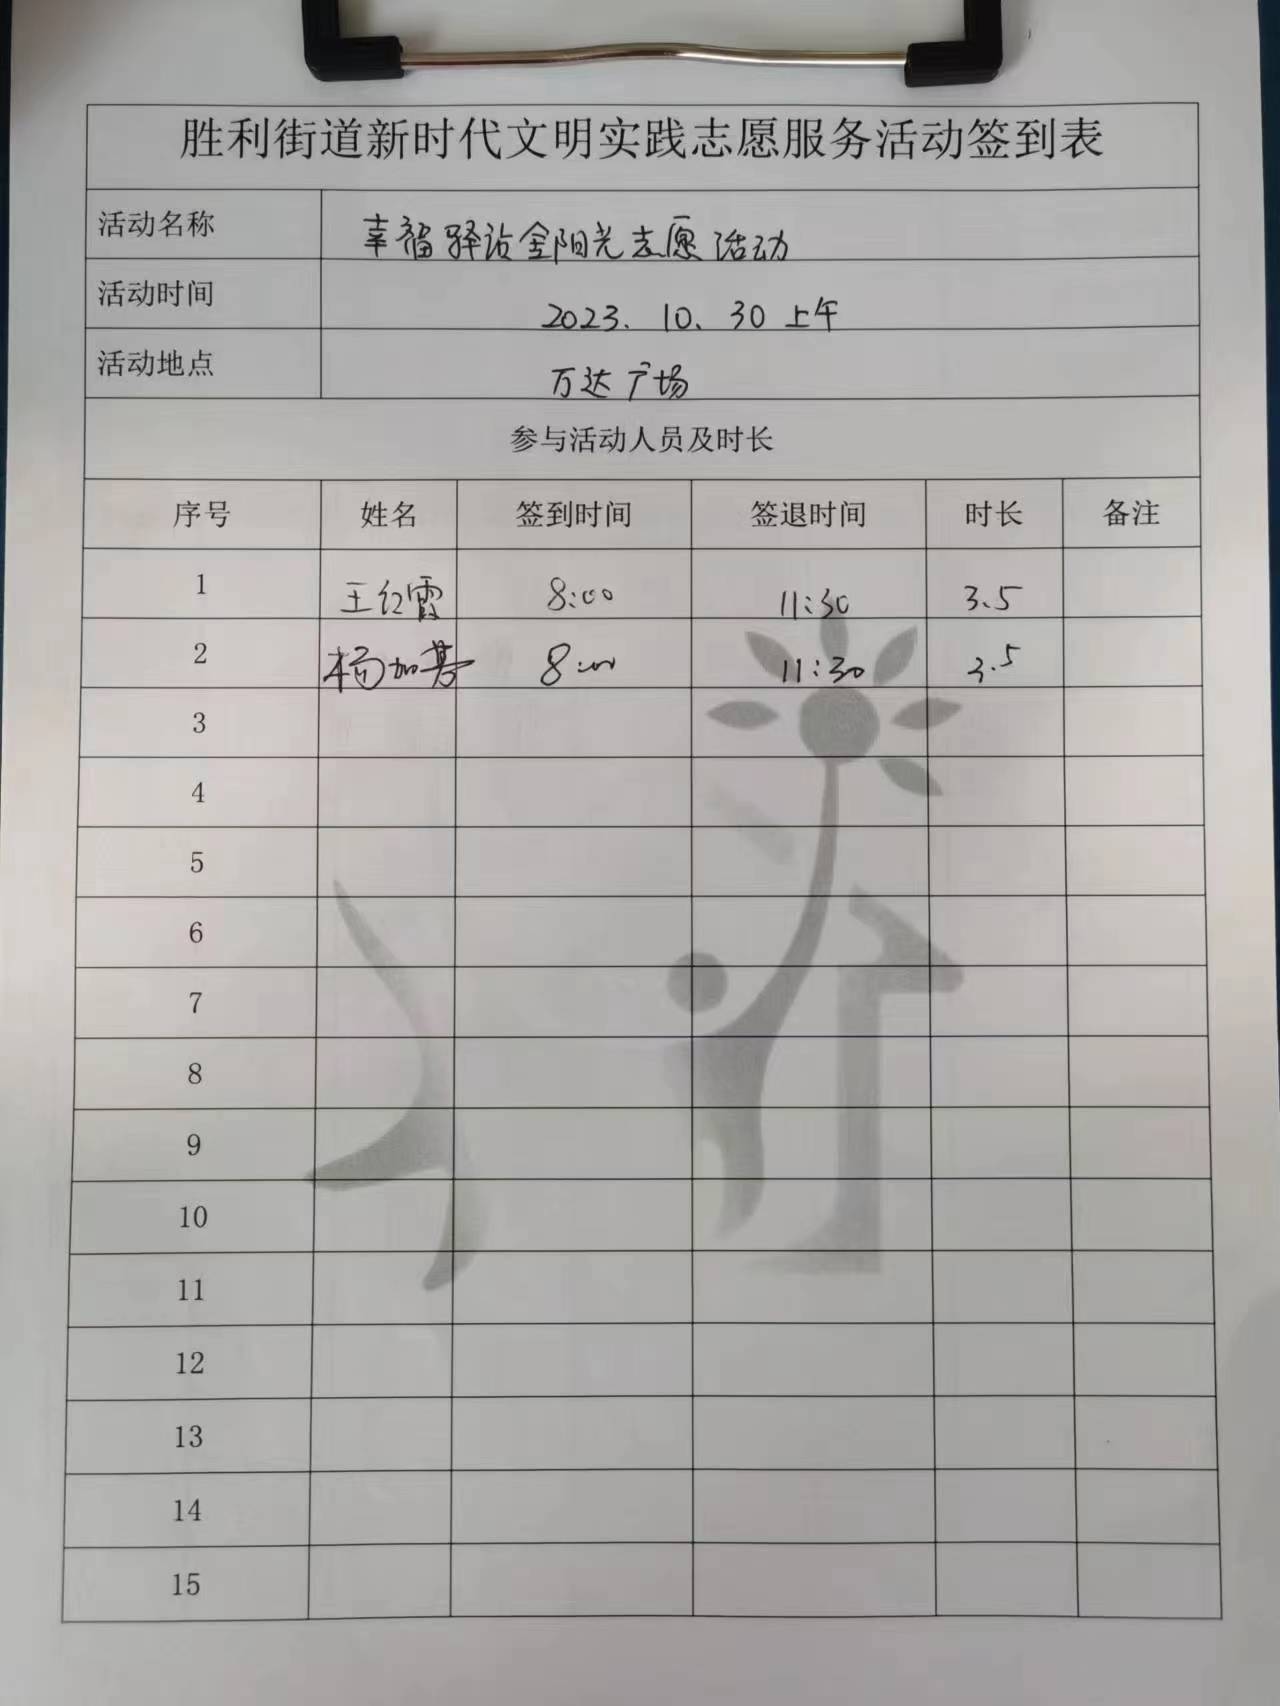 胜利街道新时代文明实践志愿服务活动签到表
活动名称 幸福驿站金阳光志愿活动
活动时间 2023. 10. 30 上午
活动地点 万达广场
参与活动人员及时长
序号 姓名 签到时间 签退时间 时长 备注
1 王红霞 8:00 11:30 3.5
2 杨加基 8:00 11:30 3.5
3
4
5
6
7
8
9
10
11
12
13
14
15